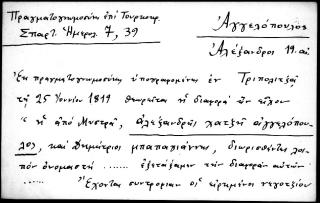 Πραγματογνωμοσύνη ἐπὶ Τουρκοκρ.
Σπαρτ. Ἡμερολ. 7, 39
Ἀγγελόπουλος
Ἀλέξανδρος 19. αἰ
Ἐν πραγματογνωμοσύνῃ ὑπογραφομένῃ ἐν Τριπολιτζᾷ
τῇ 25 Ἰουνίου 1819 θεωρεῖται ἡ διαφορὰ ὧν εἶχον
" ἡ ἀπὸ Μυστρᾶ, ἀλεξανδρῆς χατζῆ ἀγγελόπου-
λος, καὶ Δημήτριος μπαπαγιάννης, διωρισθέντες λοι-
πὸν ὀνομαστὴ ...... ἐξετάζαμεν τὴν διαφορὰν αὐτῶν
...... "Ἔχοντας συντροφίαν οἱ εἰρημένοι νεγοτζίον